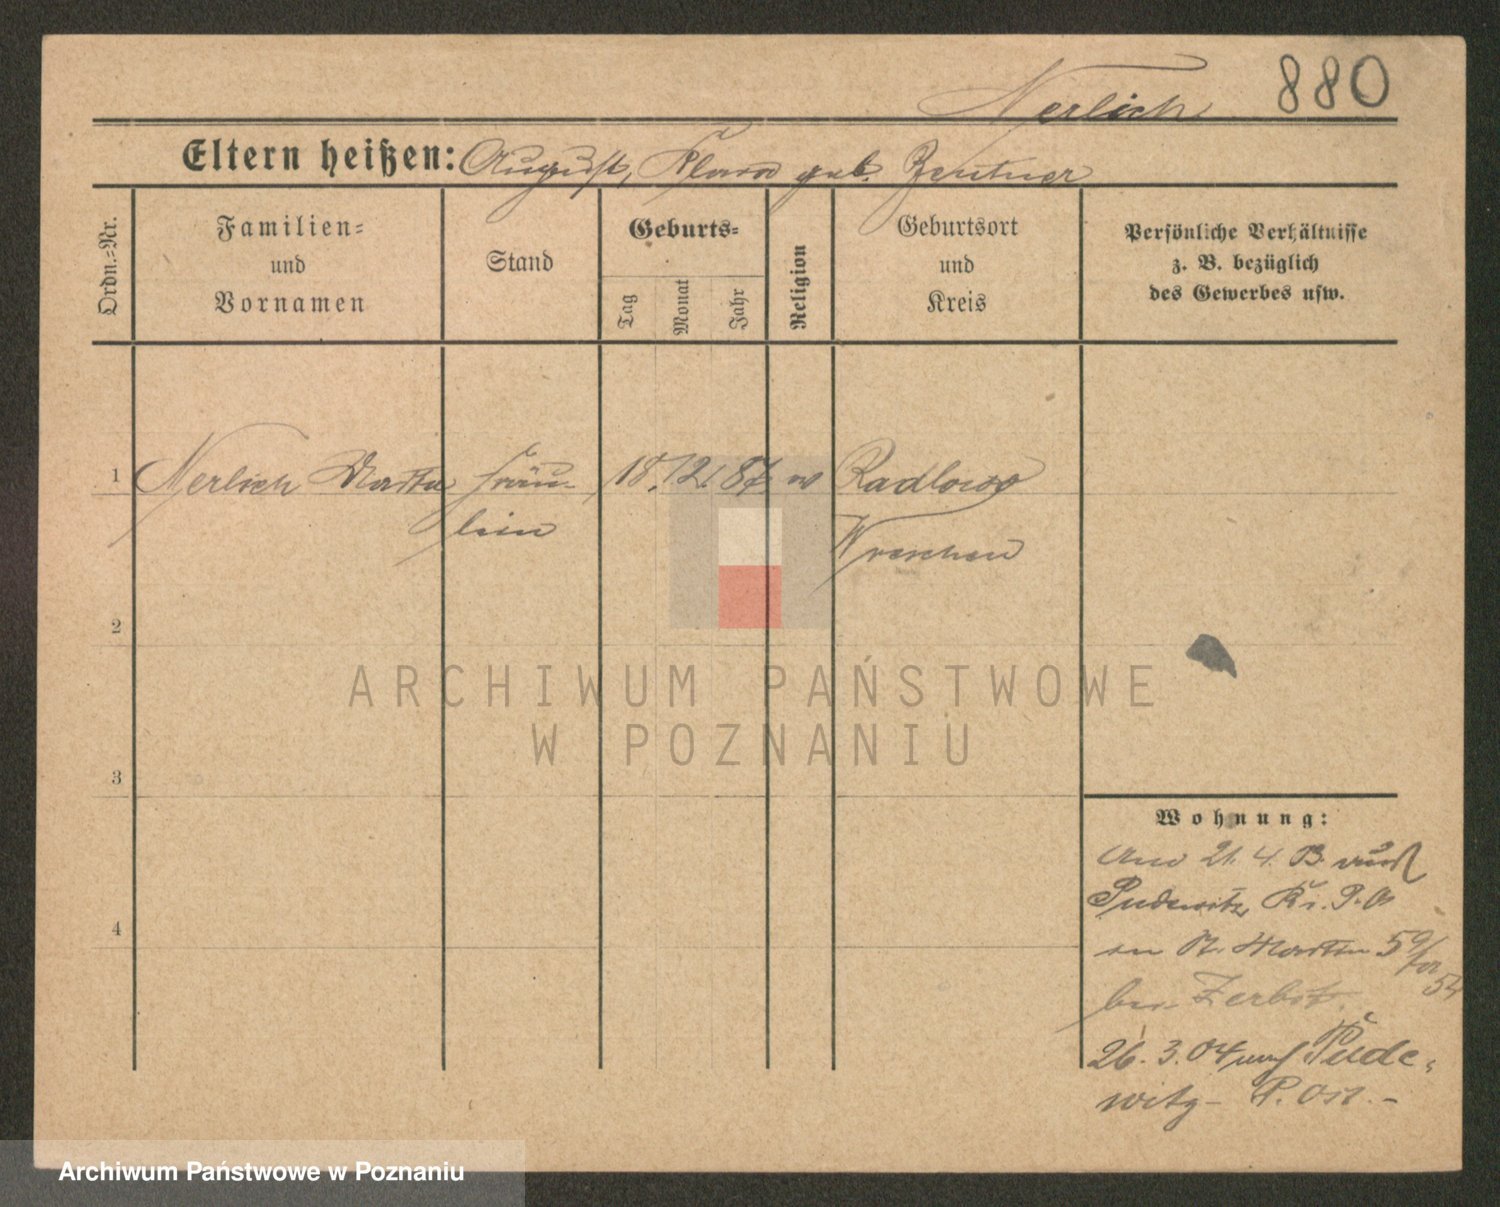 Nerlich 880
Eltern heißen: August, Klara geb. Zentner
Ordn.-Nr.
Familien-
und
Vornamen
Stand
Geburts-
Tag
Monat
Jahr
Religion
Geburtsort
und
Kreis
Persönliche Verhältnisse
z. B. bezüglich
des Gewerbes usw.
1 Nerlich Martha Fräu- 18. 12. 87 Radlowo
lein Wreschen
2
ARCHIWUM PAŃSTWOWE
W POZNANIU
3
Wohnung:
21. 4. 03
Pudewitz Kr. P. O
in St. Martin 59
54
bei Zerbst.
4
26. 3. 04 Pude-
witz - P. Ost. -
Archiwum Państwowe w Poznaniu